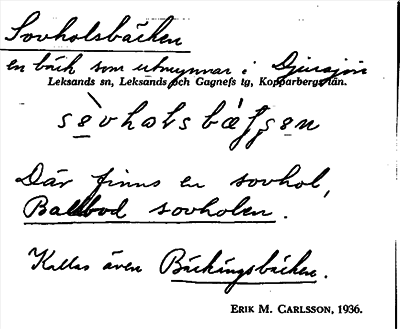 Sovholsbäcken
en bäck som utmynnar i Djursjön
Leksands sn, Leksands och Gagnefs tg, Kopparbergs län.
Där finns en sovhol,
Balbod sovholen.
Kallas även Bäckingsbäcken.
ERIK M. CARLSSON, 1936.